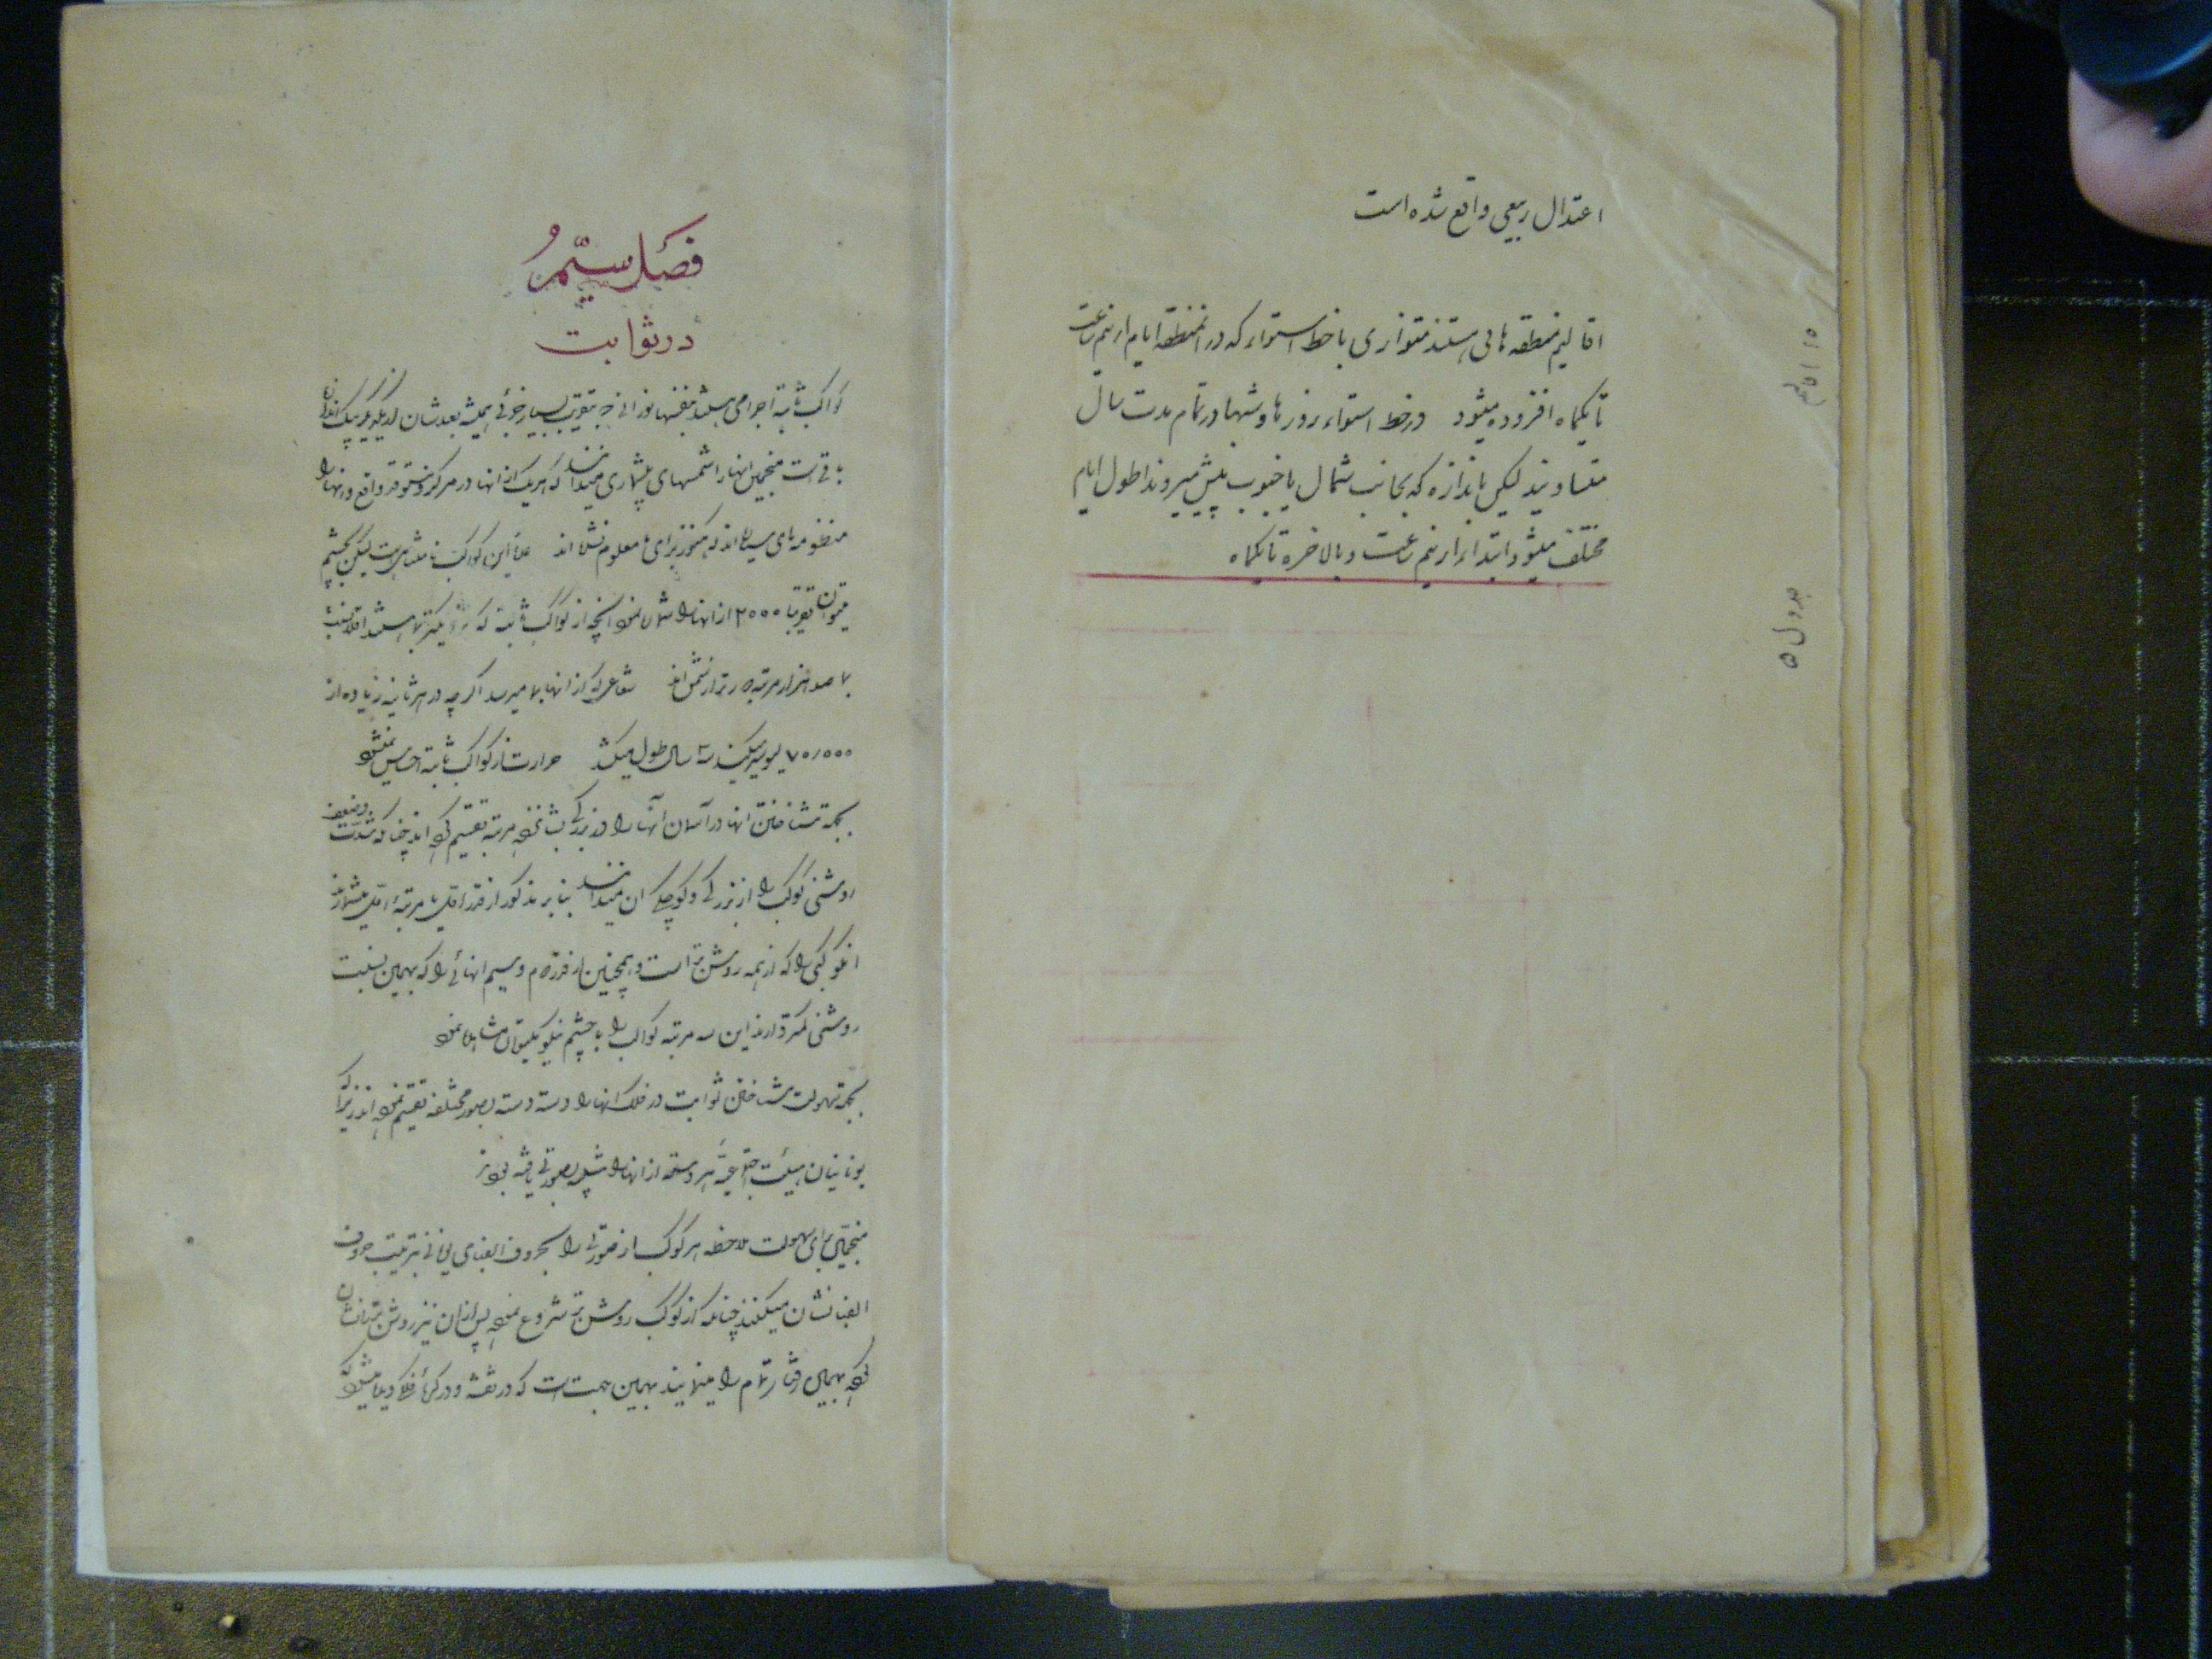 اعتدال ربیعی واقع شده است
اقالیم منطقه هائی هستند متوازی با خط استواء که در انمنطقه ایام از نیم ساعت
تا یکماه افزوده میشود در خط استواء روزها و شبها در تمام مدت سال
متساویند لیکن باندازه که بجانب شمال یا جنوب پیش میروند اطول ایام
مختلف میشود ابتداء از نیم ساعت و بالاخره تا یکماه
۱۵ اقلیم
جدول ۵
فصل سیّم
در ثوابت
کواکب ثابته اجرامی هستند بنفسها نورانی تقریب بسیار جزئی همیشه بعدشان از یکدیگر بیک اندازه
باقیست منجمین انها را شمسهای بیشماری میدانند که هر یک از انها در مرکز واقع و انها را
منظومه های سیاره اند که هنوز برای ما معلوم نشده اند این کواکب نامتناهیست لیکن بچشم
میتوان تقریبا ۲۰۰۰ از انها را نمود انچه از کواکب ثابته که نزدیکتر بما هستند اقلا
صد هزار مرتبه دورتر از شمس اند شعاعی که از انها بما میرسد اگر چه در هر ثانیه زیاده از
۷۰،۰۰۰ سیر میکند ۳ سال طول میکشد حرارت از کواکب ثابته احساس نمیشود
بجهة شناختن انها در آسمان آنها را در بزرگی مرتبه تقسیم کرده اند چنانکه شدت و ضعف
روشنی کوکب را از بزرگی و کوچکی ان میدانند بنابر مذکور از قدر اول یا مرتبهٔ اول
انکوکبی را که از همه روشن تر است و همچنین از قدر دوم و سیم انهائی را که بهمین نسبت
روشنی کمتر دارند این سه مرتبه کواکب را با چشم نیکو میتوان مشاهده نمود
بجهة سهولت شناختن ثوابت در فلک انها را دسته دسته بصور مختلفه تقسیم نموده اند زیرا که
یونانیان هیئت اجتماعیه هر دسته از انها را شبیه بصورتی یافته بودند
منجمین برای سهولت ملاحظه هر کوکب از صورتی را بحروف الفبای یونانی بترتیب حروف
الفبا نشان میکنند چنانکه از کوکب روشن تر شروع نموده پس از ان نیز روشن تر را نشان
کرده بهمین رفتار تمام را مینمایند بهمین جهت است که در نقشه و در کرهٔ فلکی دیده میشود که